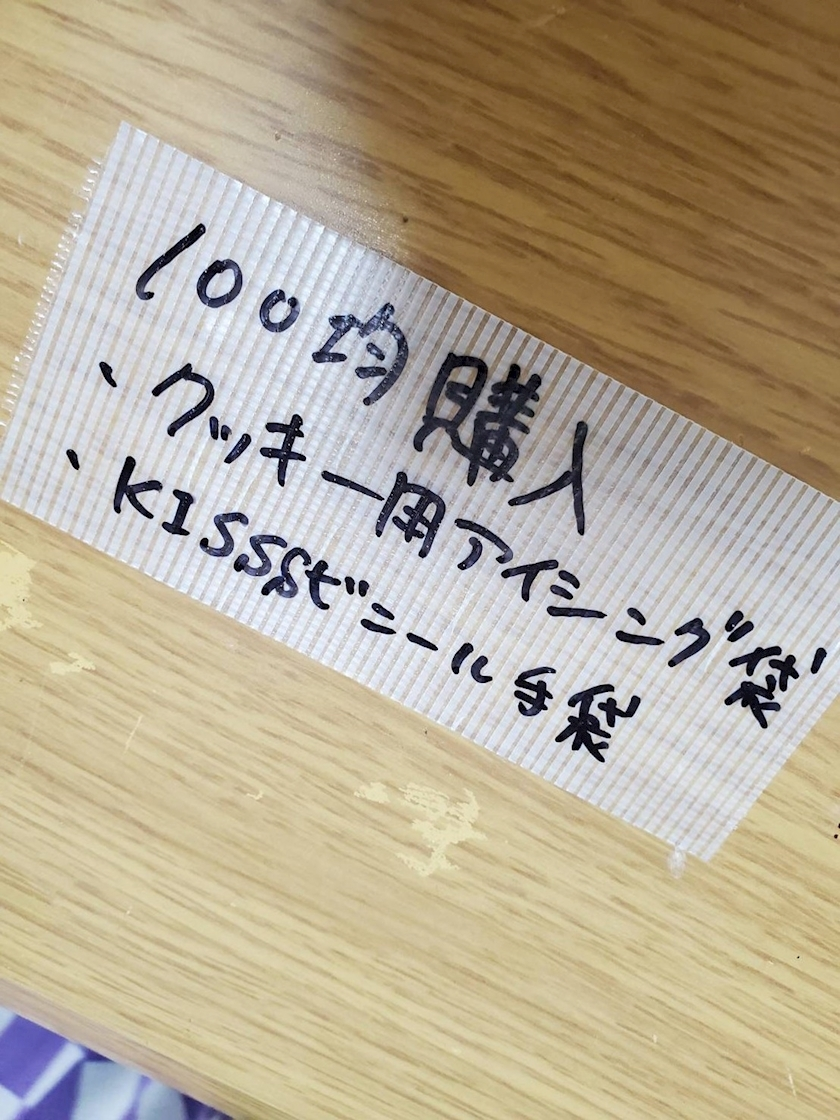 100均購入
、クッキー用アイシング袋
、KISSSビニール手袋